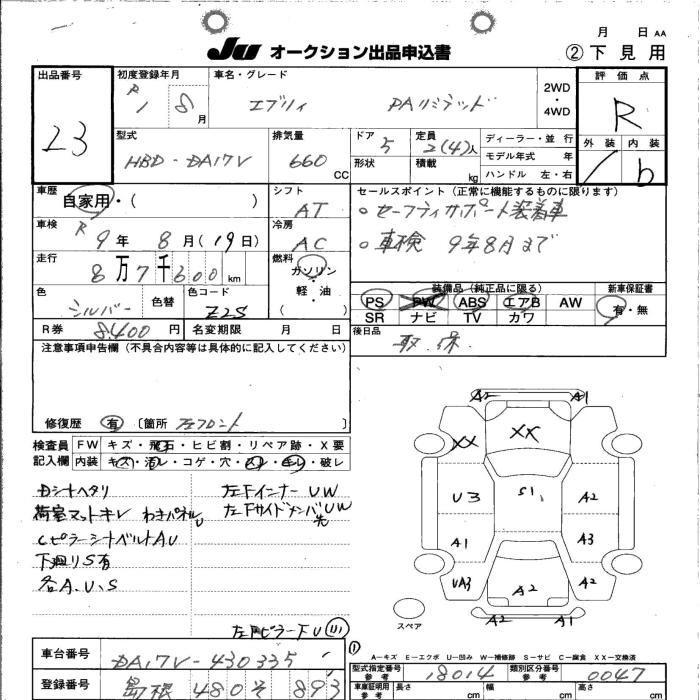 月 日 AA
JU オークション出品申込書
② 下見用
出品番号
23
初度登録年月
R 1 8 月
車名・グレード
エブリィ PAリミテッド
2WD・4WD
評価点
R
型式
HBD-DA17V
排気量
660 CC
ドア 5
形状
定員 2(4)人
積載 kg
ディーラー・並行
モデル年式 年
ハンドル 左・右
外装 内装
b
車歴
自家用・( )
シフト
AT
セールスポイント(正常に機能するものに限ります)
○セーフティサポート装着車
○車検 9年8月まで
車検
R 9年 8月(19日)
冷房
AC
走行
8万7千600 km
燃料
ガソリン・軽・油
( )
装備品(純正品に限る)
新車保証書
PS PW ABS エアB AW
SR ナビ TV カワ
有・無
色
シルバー
色替
色コード
Z2S
後日品
取.保.
R券 8,400円
名変期限 月 日
注意事項申告欄(不具合内容等は具体的に記入してください)
修復歴 有 〔箇所 左フロント 〕
検査員記入欄
FW キズ・飛石・ヒビ割・リペア跡・X要
内装 キズ・汚レ・コゲ・穴・スレ・キレ・破レ
Dシートヘタリ
荷室マットキレ わきパネルU
CピラーシートベルトAU
下廻りS有
各A.U.S
左FインナーUW
左FサイドメンバーUW
先
A2 A1
XX XX
U3 S1 A2
A1 A3
UA3 A2 A2
A2 A1
スペア
A-キズ E-エクボ U-凹み W-補修跡 S-サビ C-腐食 XX-交換済
車台番号
DA17V-430335
登録番号
島根 480 そ 893
型式指定番号 参考
18014
類別区分番号 参考
0047
車庫証明用 参考
長さ cm 幅 cm 高さ cm